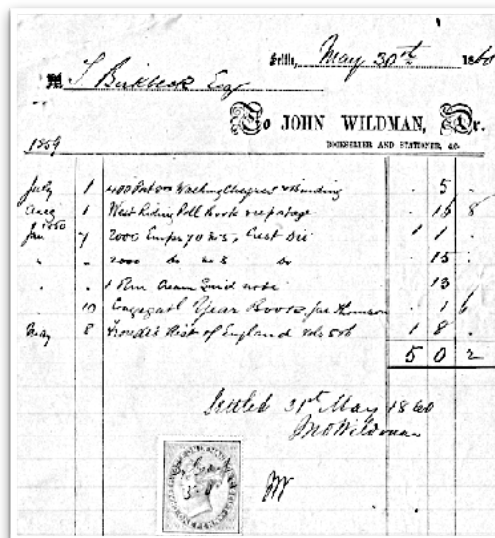 Settle, May 30th 1860
M T Birkbeck Esq
To JOHN WILDMAN, Dr.
BOOKSELLER AND STATIONER, &c.
1859
July 1 400 5
Aug 1 West Riding Poll Book & postage 15 8
Jan 1860 7 2000 Envps Crest Die 1 1
" " 2000 do do 15
1 Rm Cream Laid note 13
10 Year Book 1 6
May 8 Froude's Hist of England vols 5 & 6 1 8
5 0 2
Settled 31st May 1860
Jno Wildman
JW